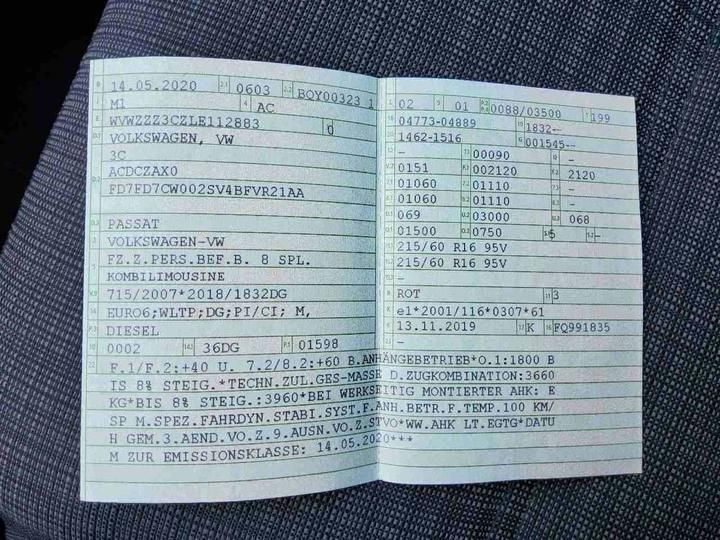 B 14.05.2020 2.1 0603 2.2 BQY00323 1
J M1 4 AC
E WVWZZZ3CZLE112883 0
D.1 VOLKSWAGEN, VW
3C
D.2 ACDCZAX0
FD7FD7CW002SV4BFVR21AA
D.3 PASSAT
2 VOLKSWAGEN-VW
5 FZ.Z.PERS.BEF.B. 8 SPL.
KOMBILIMOUSINE
V.9 715/2007*2018/1832DG
14 EURO6;WLTP;DG;PI/CI; M,
P.3 DIESEL
10 0002 14.1 36DG P.1 01598
L 02 9 01 P.2 P.4 0088/03500 T 199
18 04773-04889 19 1832--
1462-1516 G 001545--
12 - 13 00090 Q -
V.7 0151 F.1 002120 F.2 2120
7.1 01060 7.2 01110 -
8.1 01060 8.2 01110 -
U.1 069 U.2 03000 U.3 068
O.1 01500 O.2 0750 S.1 5 S.2 -
15.1 215/60 R16 95V
15.2 215/60 R16 95V
-
R ROT 11 3
K e1*2001/116*0307*61
6 13.11.2019 17 K 16 FQ991835
21 -
22 F.1/F.2:+40 U. 7.2/8.2:+60 B.ANHÄNGEBETRIEB*O.1:1800 B
IS 8% STEIG.*TECHN.ZUL.GES-MASSE D.ZUGKOMBINATION:3660
KG*BIS 8% STEIG.:3960*BEI WERKSEITIG MONTIERTER AHK: E
SP M.SPEZ.FAHRDYN.STABI.SYST.F.ANH.BETR.F.TEMP.100 KM/
H GEM.3.AEND.VO.Z.9.AUSN.VO.Z.STVO*WW.AHK LT.EGTG*DATU
M ZUR EMISSIONSKLASSE: 14.05.2020***